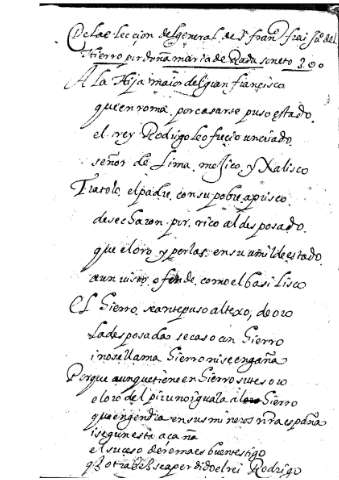 De la eleccion del general de S. fran.co frai Ju.o del
Hierro por doña maria de Rada soneto 390
A La Hija maior del gran francisco
que en roma por casarse puso estado
el rey Rodrigo le ofrecio un
señor de Lima mejico y Xalisco
el padre con su pobre aprisco
desecharon por rico al desposado
que el oro y perlas en su umilde estado
aun visto ofende como el basilisco
El Hierro se antepuso al texo de oro
La desposada se caso con Hierro
i no se llama Hierro ni se engaña
Porque aunque tiene en Hierro su tesoro
el oro del piru no iguala al Hierro
que engendra en sus mineros nra españa
i segun esta acaña
el suceso de roma es buen testigo
q otra vez se a perdido el rei Rodrigo